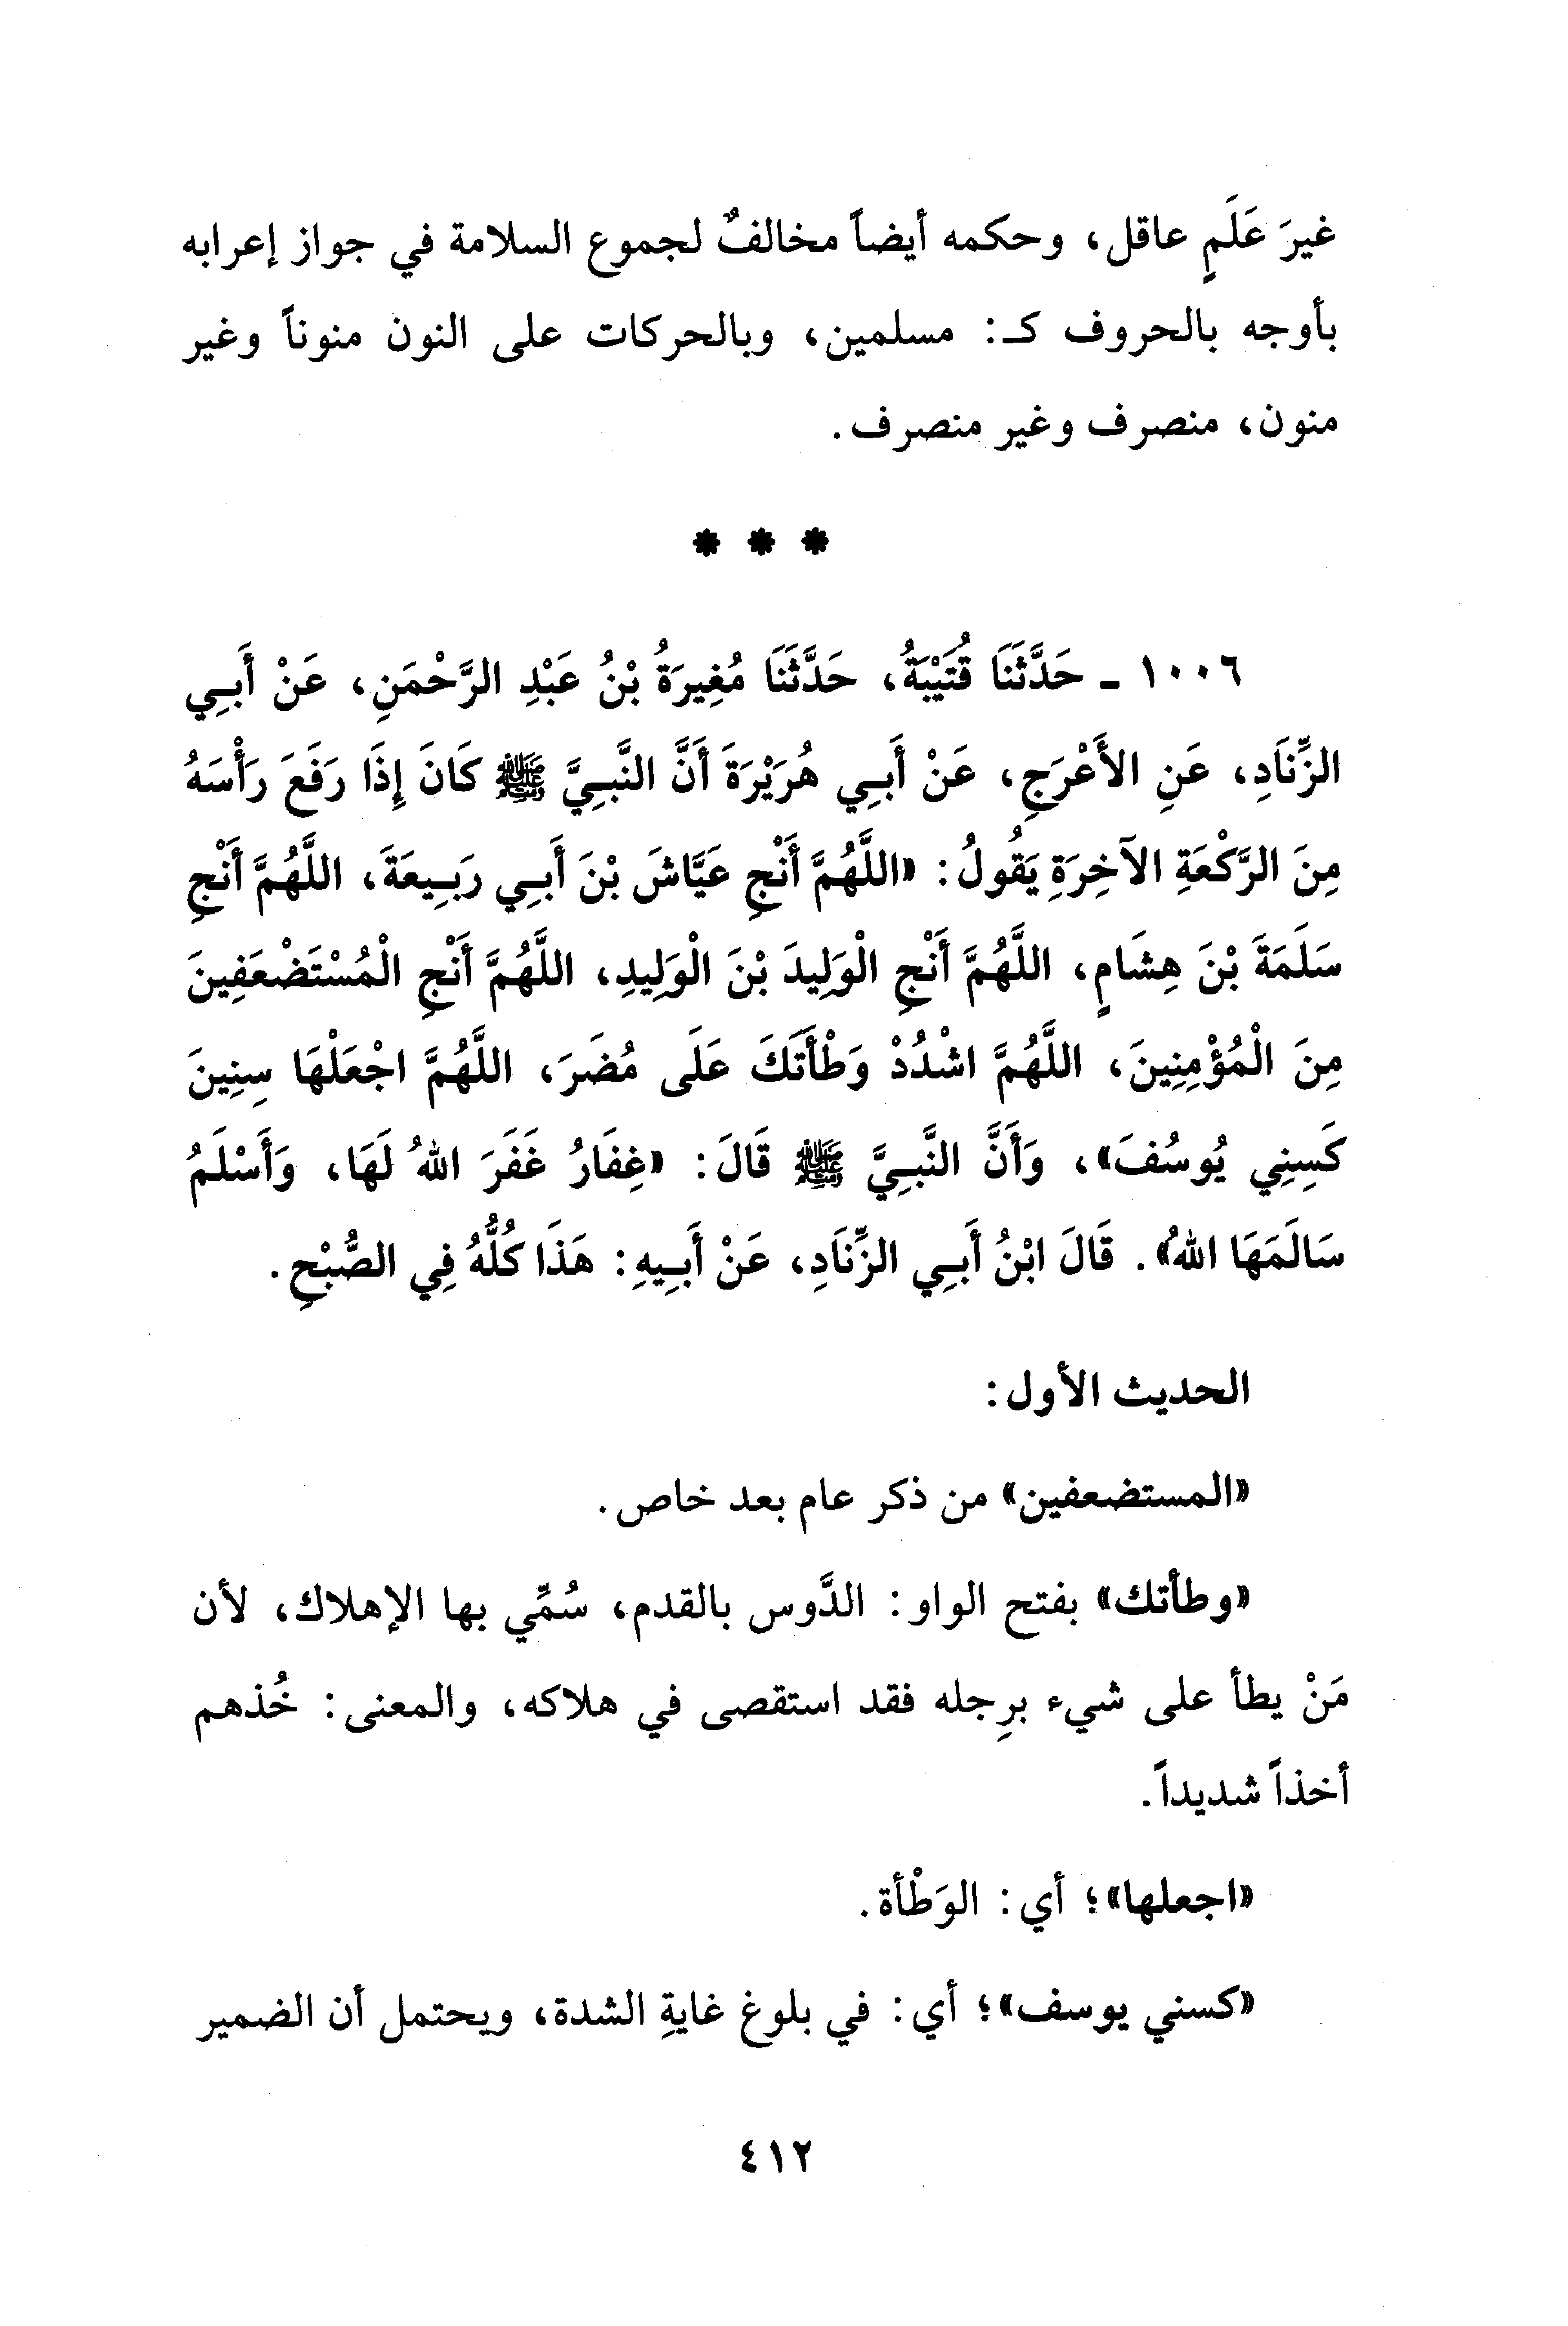 غيرَ عَلَمٍ عاقل، وحكمه أيضاً مخالفٌ لجموع السلامة في جواز إعرابه
بأوجه بالحروف كـ: مسلمين، وبالحركات على النون منوناً وغير
منون، منصرف وغير منصرف.
* * *
١٠٠٦ - حَدَّثَنَا قُتَيْبَةُ، حَدَّثَنَا مُغِيرَةُ بْنُ عَبْدِ الرَّحْمَنِ، عَنْ أَبِي
الزِّنَادِ، عَنِ الأَعْرَجِ، عَنْ أَبِي هُرَيْرَةَ أَنَّ النَّبِيَّ ﷺ كَانَ إِذَا رَفَعَ رَأْسَهُ
مِنَ الرَّكْعَةِ الآخِرَةِ يَقُولُ: «اللَّهُمَّ أَنْجِ عَيَّاشَ بْنَ أَبِي رَبِيعَةَ، اللَّهُمَّ أَنْجِ
سَلَمَةَ بْنَ هِشَامٍ، اللَّهُمَّ أَنْجِ الْوَلِيدَ بْنَ الْوَلِيدِ، اللَّهُمَّ أَنْجِ الْمُسْتَضْعَفِينَ
مِنَ الْمُؤْمِنِينَ، اللَّهُمَّ اشْدُدْ وَطْأَتَكَ عَلَى مُضَرَ، اللَّهُمَّ اجْعَلْهَا سِنِينَ
كَسِنِي يُوسُفَ»، وَأَنَّ النَّبِيَّ ﷺ قَالَ: «غِفَارُ غَفَرَ اللهُ لَهَا، وَأَسْلَمُ
سَالَمَهَا اللهُ». قَالَ ابْنُ أَبِي الزِّنَادِ، عَنْ أَبِيهِ: هَذَا كُلُّهُ فِي الصُّبْحِ.
الحديث الأول:
«المستضعفين» من ذكر عام بعد خاص.
«وطأتك» بفتح الواو: الدَّوس بالقدم، سُمِّي بها الإهلاك، لأن
مَنْ يطأ على شيء برِجله فقد استقصى في هلاكه، والمعنى: خُذهم
أخذاً شديداً.
«اجعلها»؛ أي: الوَطْأة.
«كسني يوسف»؛ أي: في بلوغ غايةِ الشدة، ويحتمل أن الضمير
٤١٢